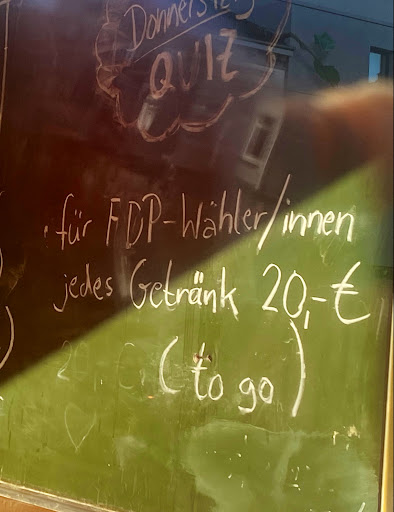 Donnerstag
QUIZ
für FDP-Wähler/innen
jedes Getränk 20,-€
(to go)